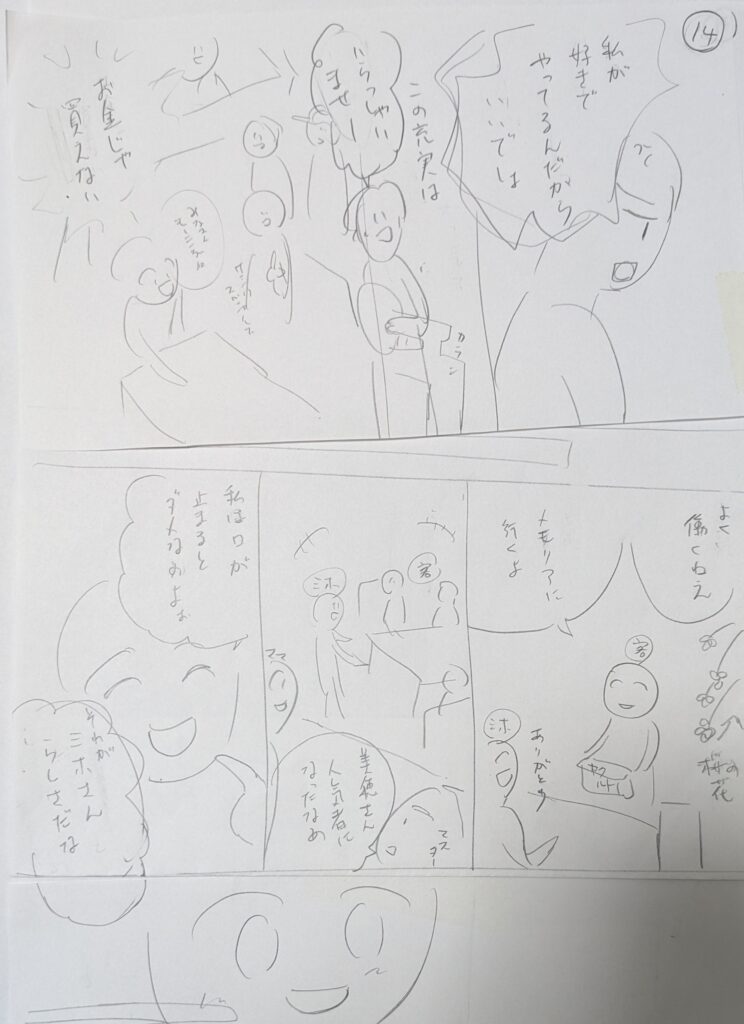 14
私が
好きで
やってるんだから
いいでしょ
この充実は
いらっしゃい
ませー
カラン
お金じゃ
買えない
よく
働くねえ
メモリアに
行くよ
客
桜の
花
ヤク
ルト
ありがとう
ミホ
客
ミホ
ママ
美穂さん
人気者に
なったなぁ
マスター
私は口が
止まると
ダメなのよぉ
それが
ミホさん
らしさだな